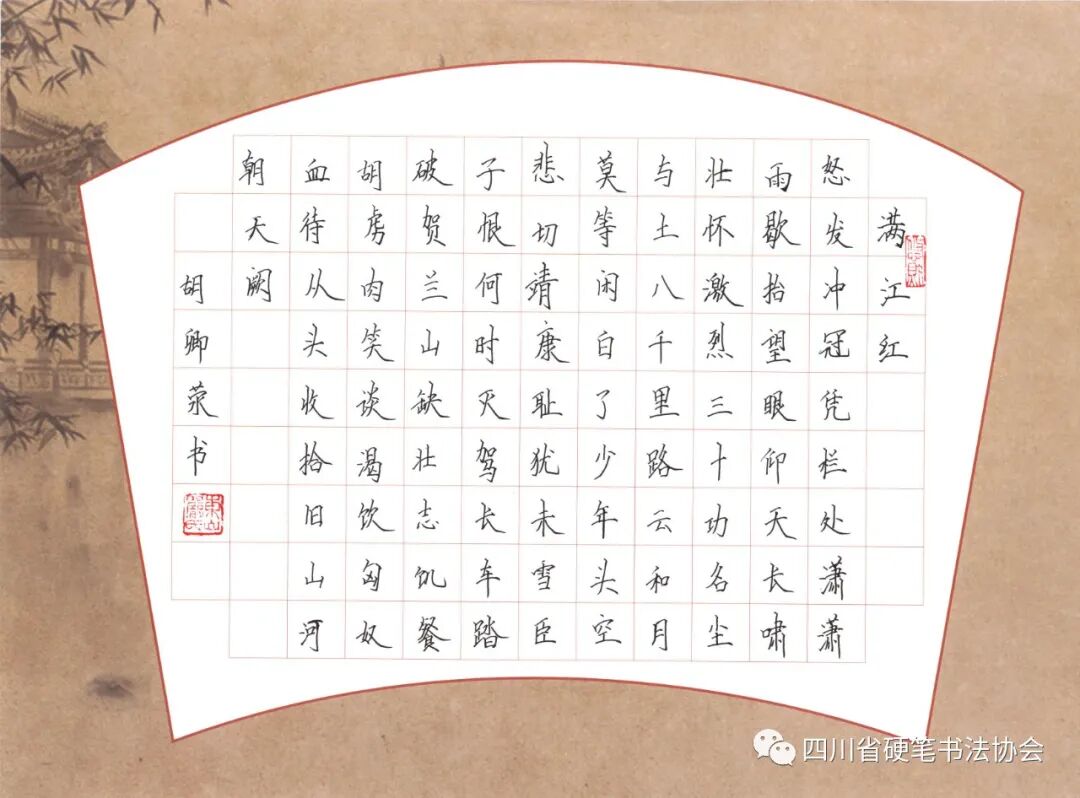 满江红
怒发冲冠凭栏处潇潇
雨歇抬望眼仰天长啸
壮怀激烈三十功名尘
与土八千里路云和月
莫等闲白了少年头空
悲切靖康耻犹未雪臣
子恨何时灭驾长车踏
破贺兰山缺壮志饥餐
胡虏肉笑谈渴饮匈奴
血待从头收拾旧山河
朝天阙
胡卿荥书
四川省硬笔书法协会